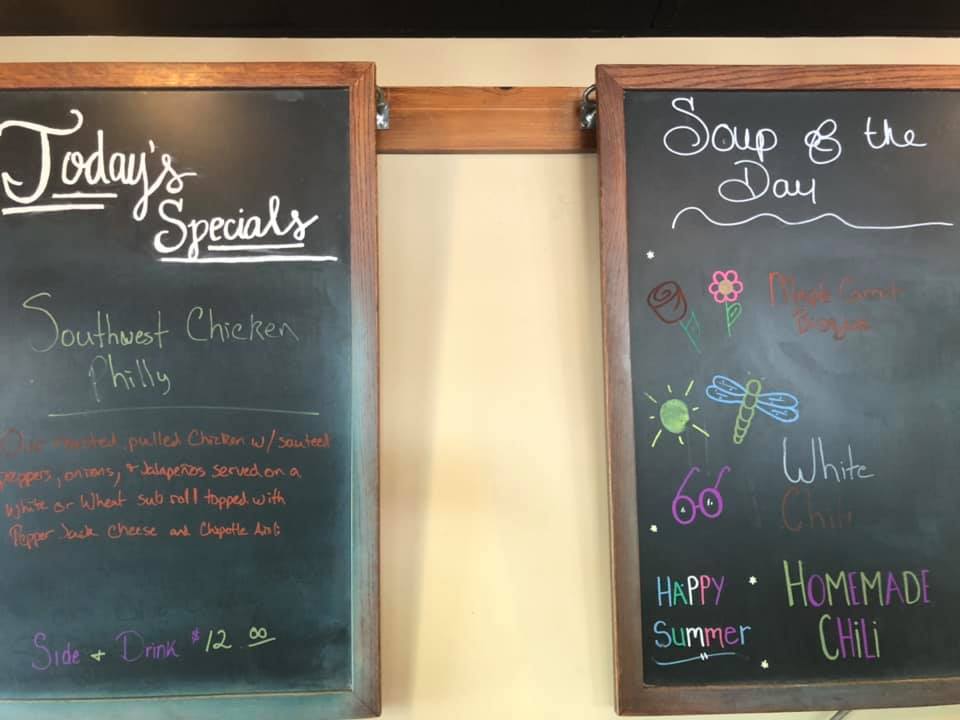 Today's
Specials
Southwest Chicken
Philly
Our roasted pulled Chicken w/ sauteed
peppers, onions, + Jalapeños served on a
White or Wheat sub roll topped with
Pepper Jack Cheese and Chipotle Aioli
Side + Drink $12.00
Soup of the
Day
Maple Carrot
Bisque
White
Chili
HAPPY
Summer
HOMEMADE
CHiLi